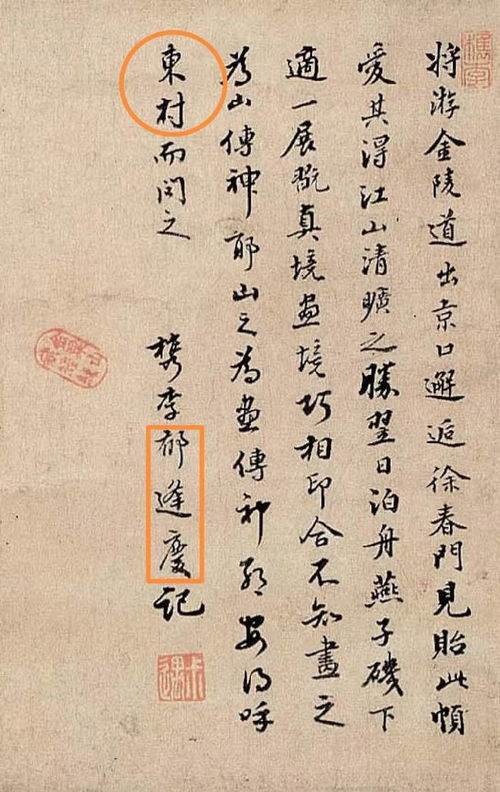 將游金陵道出京口邂逅徐春門見貽此幀
愛其淂江山清曠之勝翌日泊舟燕子磯下
適一展翫真境畫境巧相印合不知畫之
為山傳神耶山之為畫傳神耶安得呼
東村而問之
檇李郁逢慶記